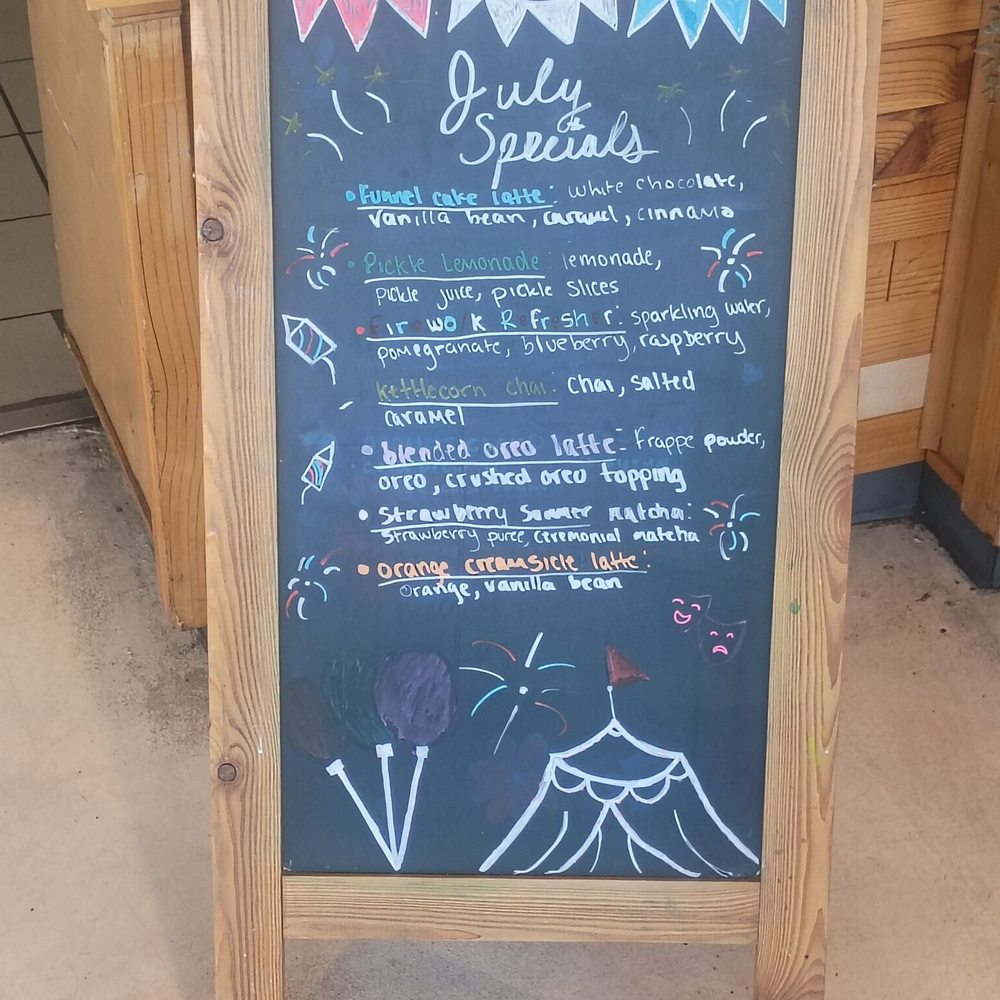 July
Specials
• Funnel cake latte: white chocolate,
vanilla bean, caramel, cinnamo
• Pickle Lemonade: lemonade,
pickle juice, pickle slices
• Firework Refresher: sparkling water,
pomegranate, blueberry, raspberry
kettlecorn chai: chai, salted
caramel
• blended oreo latte: frappe powder,
oreo, crushed oreo topping
• Strawberry Summer matcha:
strawberry puree, ceremonial matcha
• orange creamsicle latte:
orange, vanilla bean